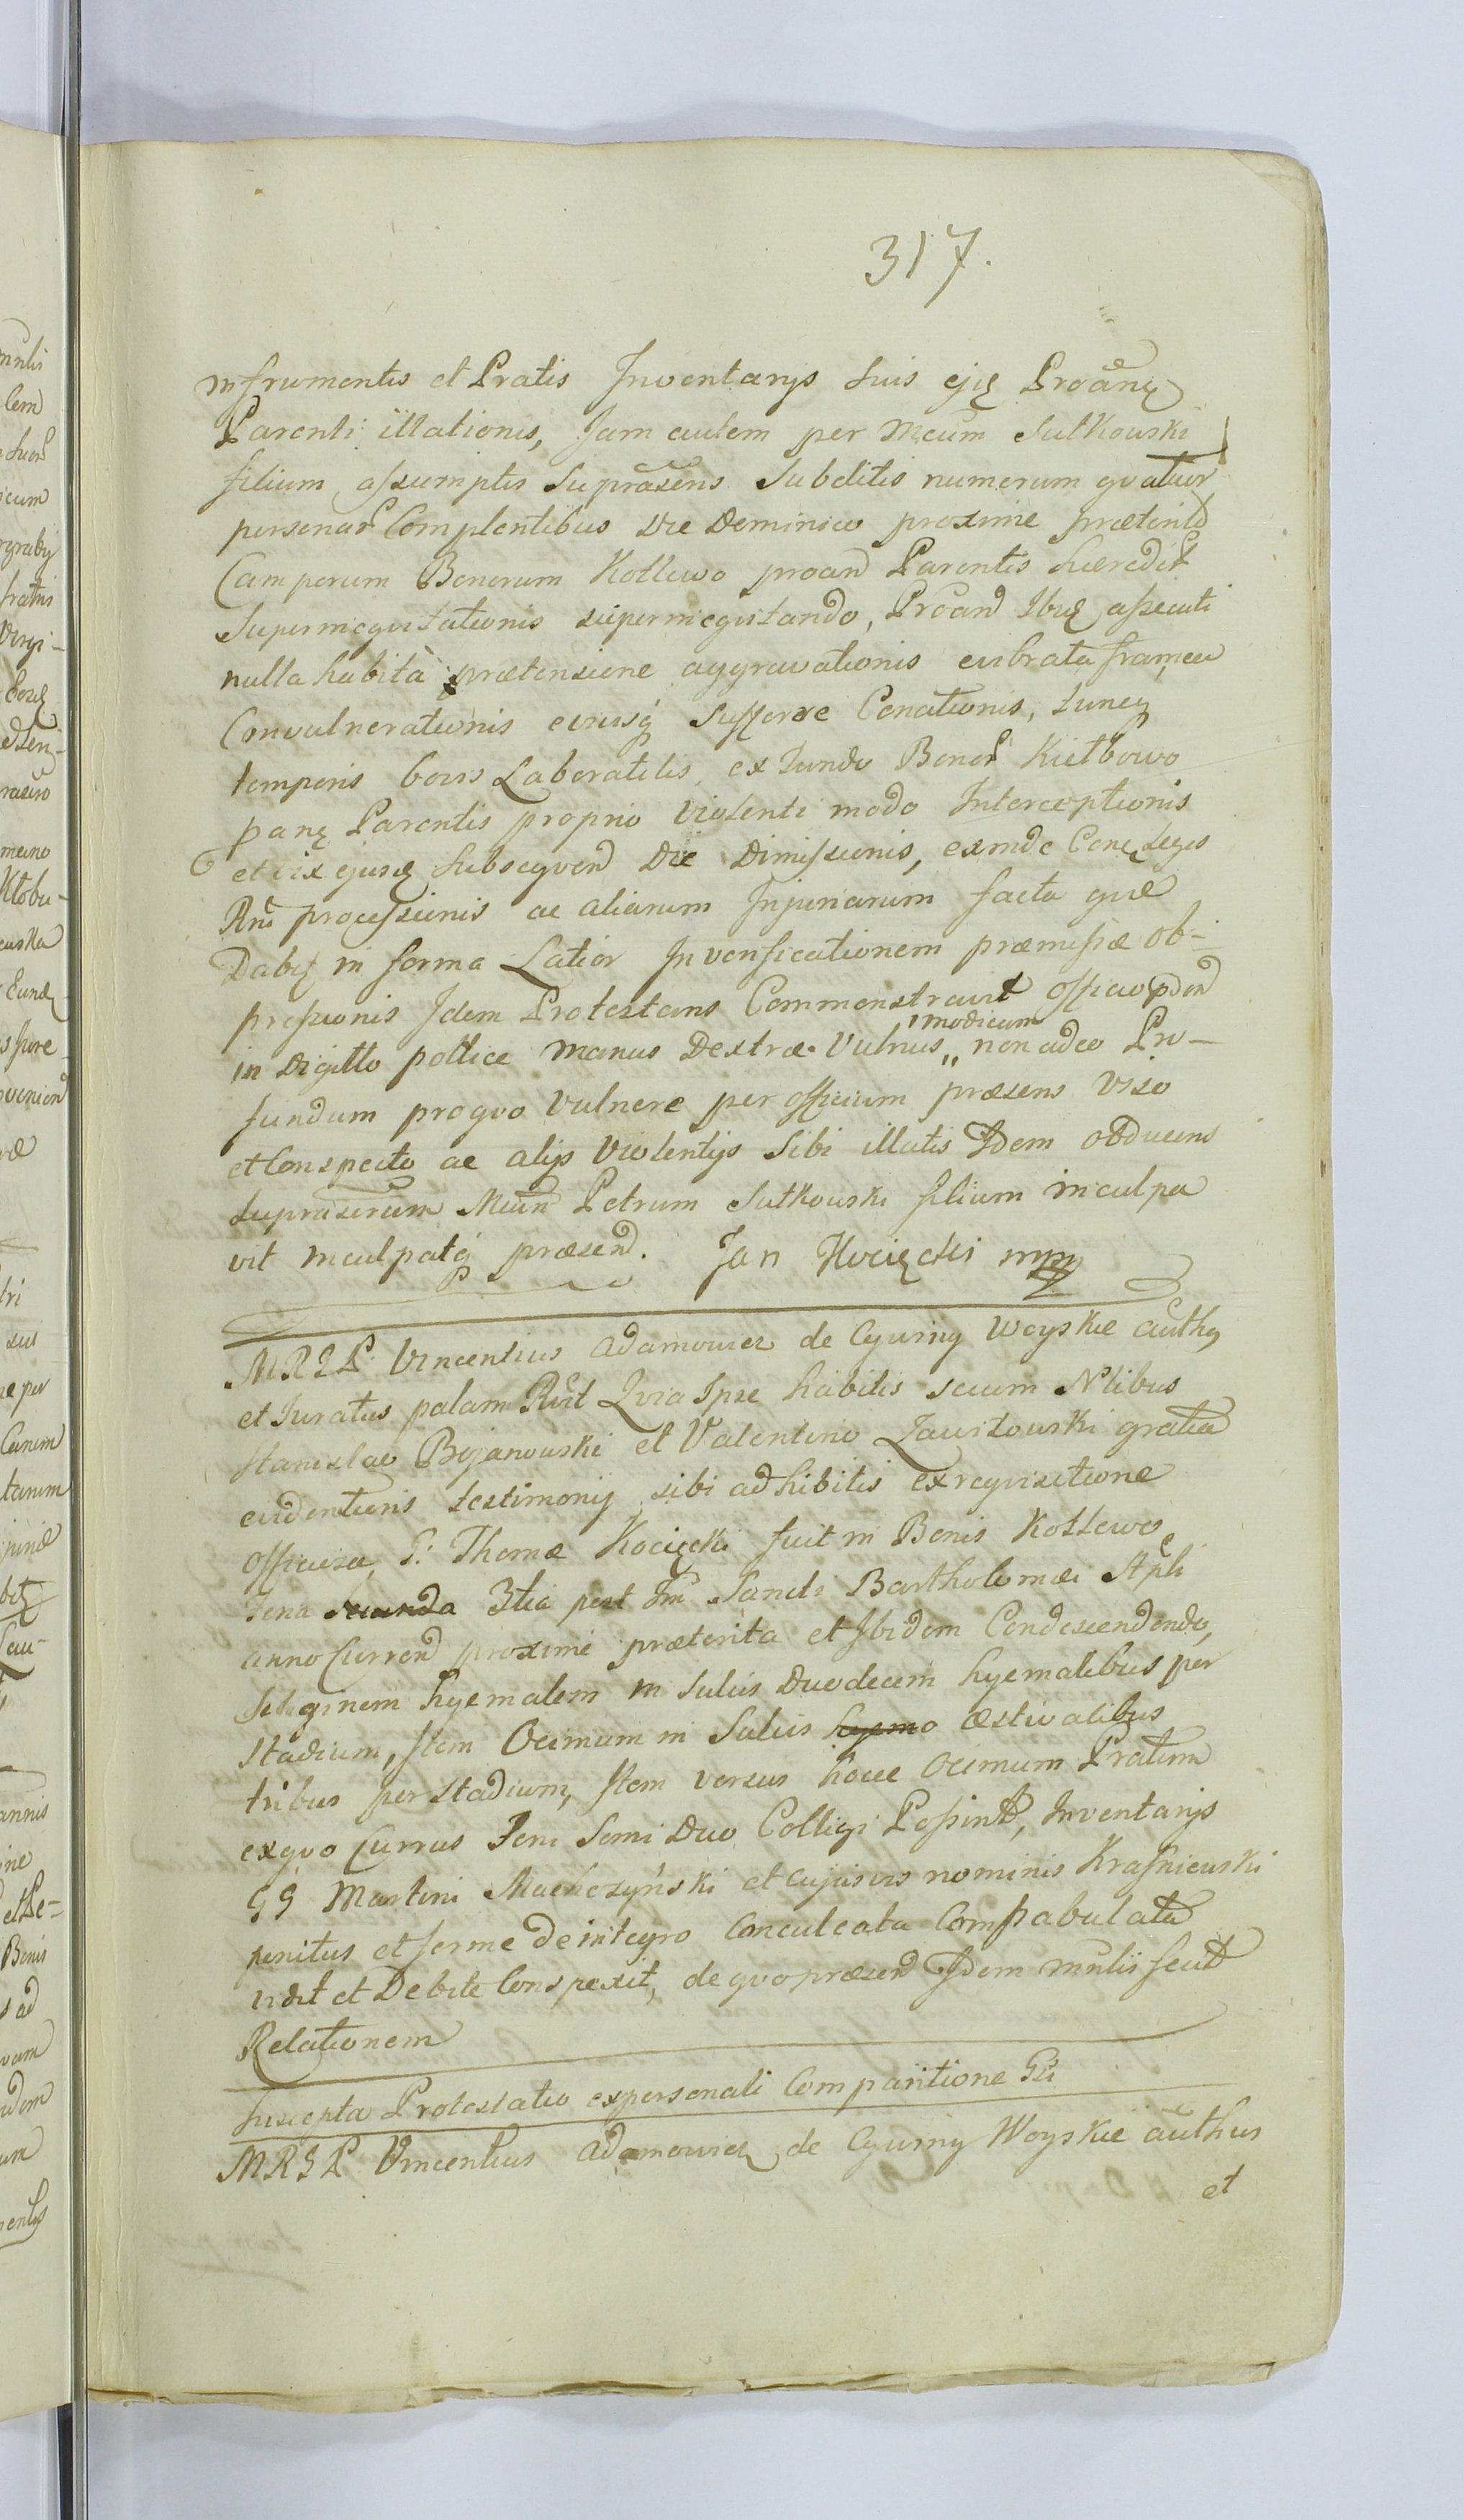 317.
in frumentis et Pratis Inventarys suis ejq Proanq
Parenti illationis, Jam autem per Mcum Sutkowski
filium assumptis Suprasens Subditis numerum qvatuor
personar Complentibus Die Dominico proxime præterito
Camporum Bonorum Kotlewo proand Parentis hæredit
Supermeqvitationis supermeqvitando, Proand Ibuq assecuti
nulla habita prætensione aggravationis evibrata framea
Convulnerationis eiusq Sufferre Conationis, tuncq
temporis bovis Laboratilis, ex fundo Bonor Kiełbowo
panq Parentis proprio Violenti modo Interceptionis
et vix ejusq Subseqvend Die Dimissionis, exinde Conq Leges
Rni processionis ac aliarum Injuriarum facta qvæ
Dabit in forma Latior In verificationem præmissæ ob-
pressionis Idem Protestans Commonstravit officio pdend
in Digitto pollice manus Dextræ Vulnus „ modicum non adeo Pro-
fundum pro qvo Vulnere per officium præsens Viso
et Conspecto ac alijs Violentijs Sibi illatis Idem obducens
suprascrum Mcum Petrum Sutkowski filium inculpa
vit inculpatq præsend. Jan Kocięcki mpp
MRGL Vincentius Adamowicz de Cywiny Woyskie authq
et Juratus palam Rvit Qvia Ipse habitis secum Nlibus
Stanislao Bojanowski et Valentino Zawitowski gratia
evidentioris testimonij sibi adhibitis ex reqvisitione
officiosa G: Thomæ Kocięcki fuit in Bonis Kotlewo
Feria secunda 3tia post Fm Sancti Bartholomæi Apli
anno Currend proxime præterita et Ibidem Condescendendo,
Seliginem hyemalem in Sulcis Duodecim hyemalibus per
Stadium, Item Ocimum in Sulcis hyemo æstivalibus
tribus per stadium, Item versus hocce Ocimum Pratum
ex qvo Currus Feni Semi Duo Colligi Possint, Inventarijs
GG Martini Machczyński et cujusvis nominis Krasniewski
penitus et ferme de integro Conculcata Compabulata
vidit et Debite Conspexit, de qvo præsend Idem mnlis fecit
Relationem
Suscepta Protestatio ex personali Comparitione Gli
MRGL Vincentius Adamowicz de Cywiny Woyskie authus
et